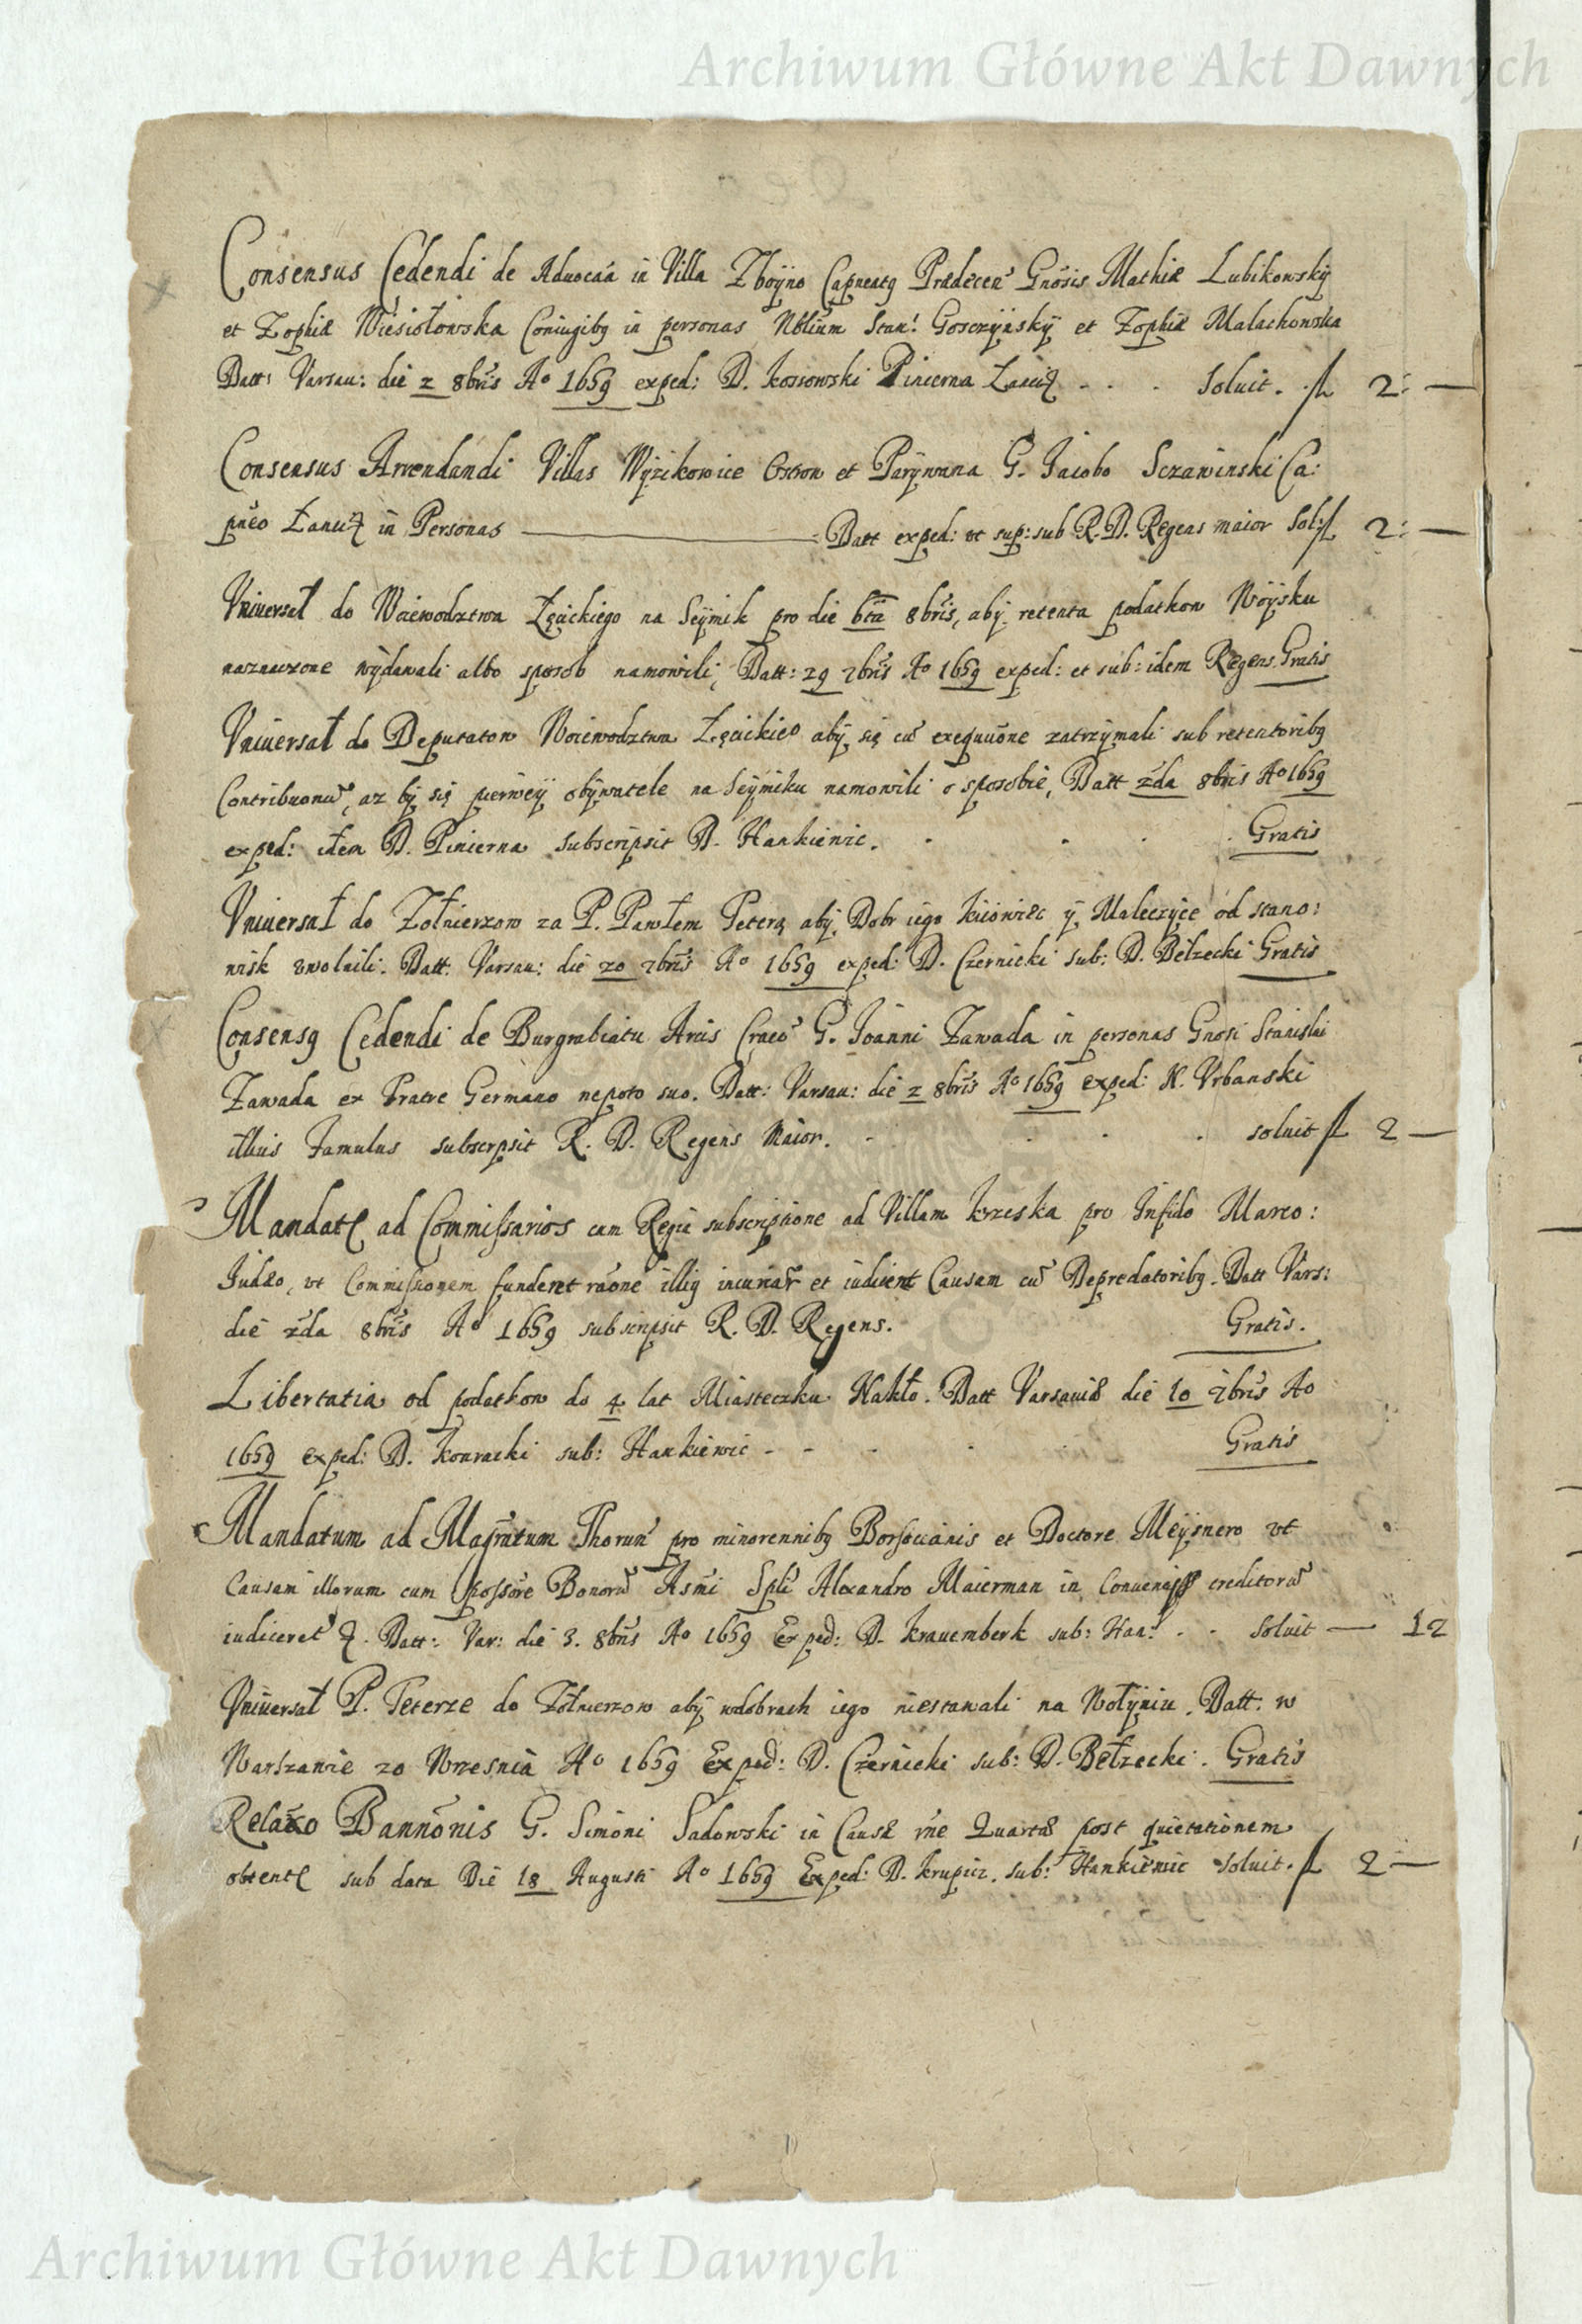 Archiwum Główne Akt Dawnych
Consensus Cedendi de Aduocaã in Villa Zboÿno Capneatq Prædecen Gnosis Mathiæ Lubikowskÿ
et Zophiæ Wiesiołowska Coniugibq in personas Nbilium Stan: Gosczÿnskÿ et Zophiæ Malachowska
Datt: Varsau: die 2 8bris Aº 1659 exped: D. Kossowski Pinierna . . . Soluit . fl 2: —
Consensus Arrendandi Villas Wÿzikowice Ostrow et Parÿwana G. Iacobo Sczawinski Ca:
pneo in Personas ——— Datt exped: ut sup: sub R. D. Regens maior Sol: fl 2: —
Vniuersał do Woiewodztwa Łęcickiego na Seÿmik pro die 6ta 8bris, abÿ retenta podatkow Woÿsku
naznaczone wÿdawali albo sposob namowili, Datt: 29 7bris Aº 1659 exped: et sub: idem Regens Gratis
Vniuersał do Deputatow Woiewodztwa Łęcickieo abÿ się cũ exequuõne zatrzÿmali sub retentoribq
Contribuonũ, az bÿ się pierweÿ obÿwatele na Seÿmiku namowili o sposobie, Datt 2da 8bris Aº 1659
exped: idem D. Pinierna subscripsit D. Hankiewic. . . . . Gratis
Vniuersał do Zołnierzow za P. Pawłem Teterą abÿ Dobr iego Kiiowiec ÿ Maleczÿce od stano:
wisk uwolnili. Datt: Varsau: die 20 7bris Aº 1659 exped: D. Czernicki sub: D. Bełzecki Gratis
Consensq Cedendi de Burgrabiatu Arcis Craco G. Ioanni Zawada in personas Gnosi Stanislai
Zawada ex Fratre Germano nepoto suo. Datt: Varsau: die 2 8bris Aº 1659 exped: N. Vrbanski
illius famulus subscrpsit R. D. Regens Maior. . . . . soluit fl 2 —
Mandat ad Commissarios cum Regia subscriptione ad Villam Krzeska pro Infido Marco:
Iudæo, ut Commissionem funderet raõne illiq iniuriar et iudicent Causam cũ Depredatoribq. Datt Vars:
die 2da 8bris Aº 1659 subscripsit R. D. Regens. Gratis.
Libertatia od podatkow do 4 lat Miasteczku Nakło. Datt Varsauiæ die 10 7bris Aº
1659 exped: D. Konracki sub: Hankiewic - - - . . Gratis
Mandatum ad Magratum Thorun pro minorennibq et Doctore Meÿsnero ut
Causam illorum cum possore Bonorũ Asmi Alexandro Maierman in creditorũ
iudiceret. Datt: Var: die 3. 8bris Aº 1659 Exped: D. Krauemberk sub: Han: . . Soluit — 12
Vniuersał P. Teterze do Zołnierzow abÿ wdobrach iego niestawali na Wołÿniu. Datt: w
Warszawie 20 Wrzesnia Aº 1659 Exped: D. Czernicki sub: D. Bełzecki. Gratis
Relaxo Bannõnis G. Simoni Sadowski in Causæ rñe Quartæ post quietationem
obtent sub data Die 18 Augusti Aº 1659 Exped: D. Krupicz. sub: Hankiewic soluit. fl 2 —
Archiwum Główne Akt Dawnych